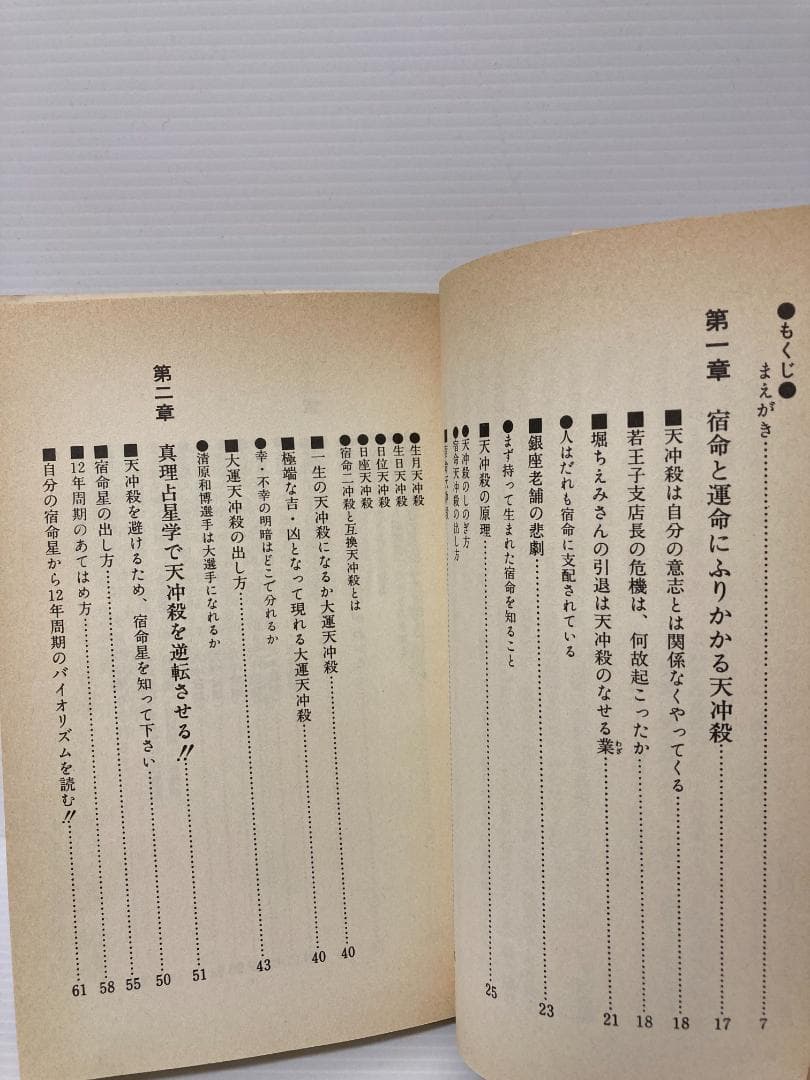 ●もくじ●
まえがき……7
第一章 宿命と運命にふりかかる天冲殺……17
■天冲殺は自分の意志とは関係なくやってくる……18
■若王子支店長の危機は、何故起こったか……18
■堀ちえみさんの引退は天冲殺のなせる業……21
わざ
●人はだれも宿命に支配されている
■銀座老舗の悲劇……23
●まず持って生まれた宿命を知ること
■天冲殺の原理……25
●天冲殺のしのぎ方
●宿命天冲殺の出し方
●生月天冲殺
●生日天冲殺
●日位天冲殺
●日座天冲殺
●宿命二冲殺と互換天冲殺とは
■一生の天冲殺になるか大運天冲殺……40
■極端な吉・凶となって現れる大運天冲殺……40
●幸・不幸の明暗はどこで分れるか
■大運天冲殺の出し方……43
●清原和博選手は大選手になれるか
第二章 真理占星学で天冲殺を逆転させる!!……51
■天冲殺を避けるため、宿命星を知って下さい……50
■宿命星の出し方……55
■12年周期のあてはめ方……58
■自分の宿命星から12年周期のバイオリズムを読む!!……61